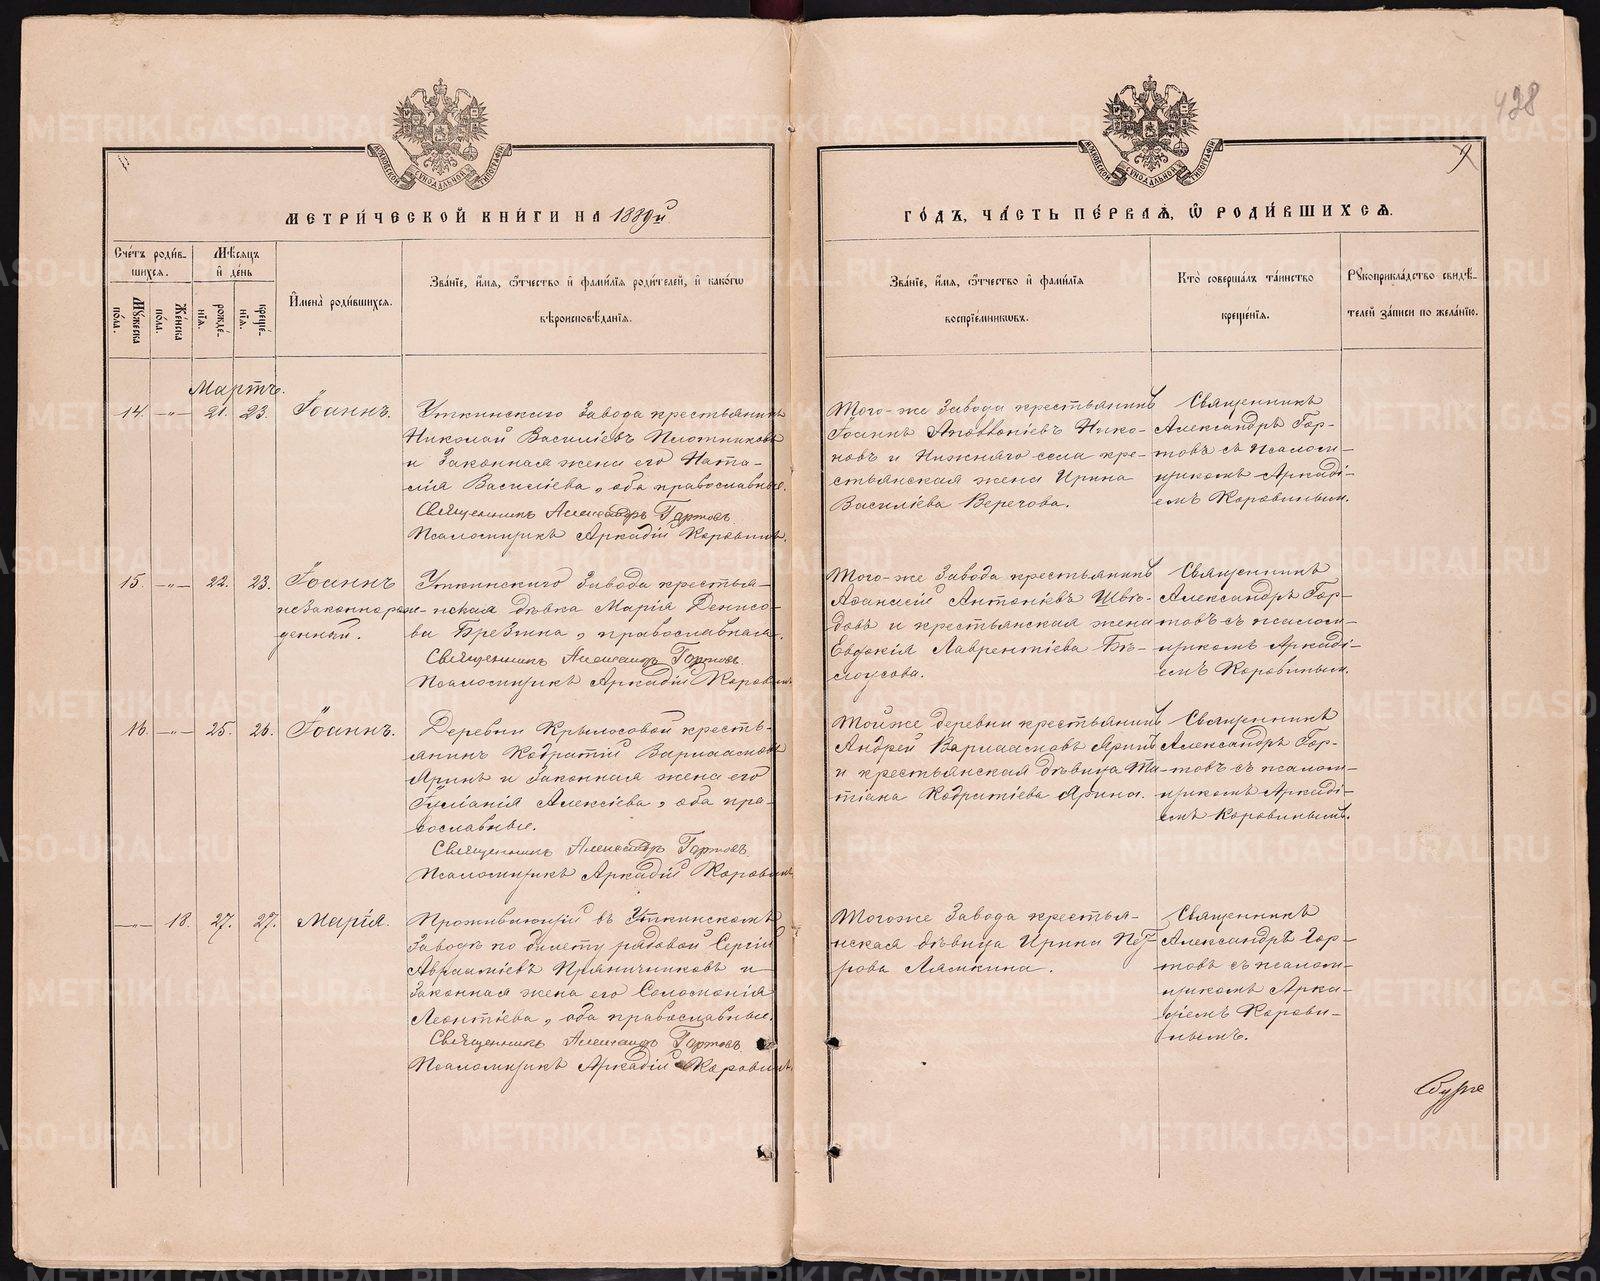 428
9
МЕТРИ́ЧЕСКОЙ КНИ́ГИ НА 1889й
ГО́ДЪ, ЧА́СТЬ ПЕ́РВАѦ, Ѿ РОДИ́ВШИХСѦ.
Сче́тъ роди́в-
шихсѧ.
Мꙋжеска по́ла.
Же́нска по́ла.
Мѣ́сѧцъ
и҆ де́нь
рожде́-
нїѧ.
креще́-
нїѧ.
И҆мена̀ роди́вшихсѧ.
Зва́нїе, и҆́мѧ, ѻ҆́тчество и҆ фами́лїѧ роди́телей, и҆ како́гѡ
вѣроисповѣ́данїѧ.
Зва́нїе, и҆́мѧ, ѻ҆́тчество и҆ фами́лїѧ
воспрїе́мникѡвъ.
Кто̀ соверша́лъ та́инство
креще́нїѧ.
Рꙋкоприкла́дство свидѣ́-
телей за́писи по жела́нїю.
Мартъ.
14. —"— 21. 23. Іоаннъ.
Уткинскаго Завода крестьянинъ
Николай Василіевъ Плотниковъ
и законная жена его Ната-
лія Василіева, оба православные.
Священникъ Александръ Гортовъ.
Псаломщикъ Аркадій Коровинъ.
Того-же Завода крестьянинъ
Іоаннъ Нико-
новъ и Нижняго села кре-
стьянская жена Ирина
Василіева Веретова.
Священникъ
Александръ Гор-
товъ съ псалом-
щикомъ Аркаді-
емъ Коровинымъ.
15. —"— 22. 23. Іоаннъ
незаконнорож-
денный.
Уткинскаго Завода крестья-
нская дѣвка Марія Денисо-
ва Брезгина, православная.
Священникъ Александръ Гортовъ.
Псаломщикъ Аркадій Коровинъ.
Того-же Завода крестьянинъ
Аѳанасій Антоніевъ Шве-
довъ и крестьянская жена
Евдокія Лаврентіева Бѣ-
лоусова.
Священникъ
Александръ Гор-
товъ съ псалом-
щикомъ Аркаді-
емъ Коровинымъ.
16. —"— 25. 26. Іоаннъ.
Деревни Крылосовой кресть-
янинъ Кодратій Варлаамовъ
Яринъ и законная жена его
Іуліанія Алексіева, оба пра-
вославные.
Священникъ Александръ Гортовъ.
Псаломщикъ Аркадій Коровинъ.
Той же деревни крестьянинъ
Андрей Варлаамовъ Яринъ
и крестьянская дѣвица Та-
тіана Кодратіева Ярина.
Священникъ
Александръ Гор-
товъ съ псалом-
щикомъ Аркаді-
емъ Коровинымъ.
—"— 18. 27. 27. Марія.
Проживающій въ Уткинскомъ
Заводѣ по билету рядовой Сергій
Авраамiевъ Пряничниковъ и
законная жена его Соломонія
Леонтіева, оба православные.
Священникъ Александръ Гортовъ.
Псаломщикъ Аркадій Коровинъ.
Того же Завода крестья-
нская дѣвица Ирина Пет-
рова Лямкина.
Священникъ
Александръ Гор-
товъ съ псалом-
щикомъ Арка-
діемъ Корови-
нымъ.
METRIKI.GASO-URAL.RU